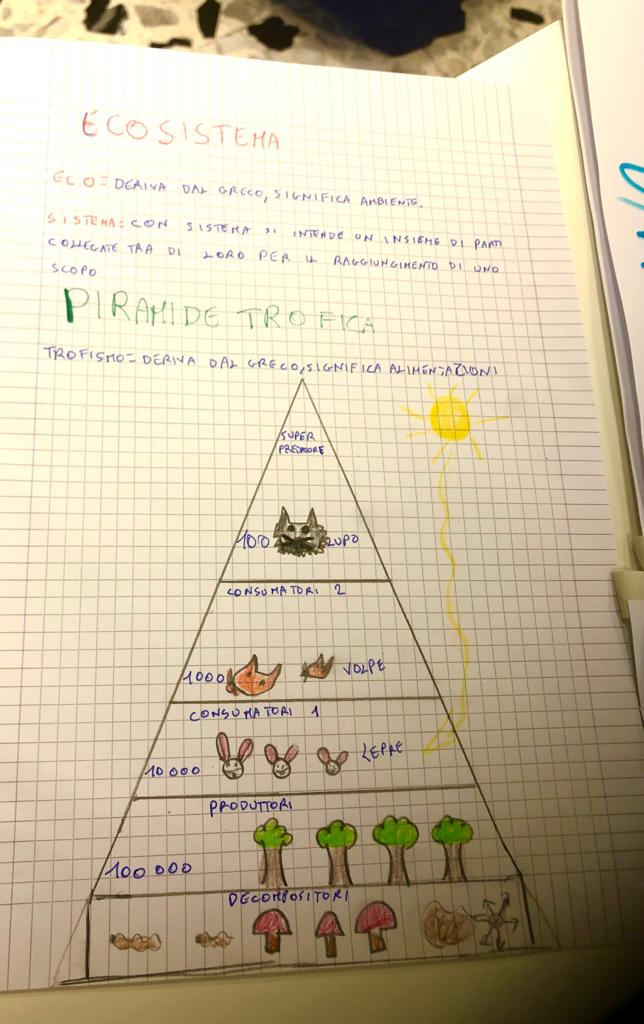 ECOSISTEMA
ECO = DERIVA DAL GRECO, SIGNIFICA AMBIENTE.
SISTEMA: CON SISTEMA SI INTENDE UN INSIEME DI PARTI
COLLEGATE TRA DI LORO PER IL RAGGIUNGIMENTO DI UNO
SCOPO
PIRAMIDE TROFICA
TROFISMO = DERIVA DAL GRECO, SIGNIFICA ALIMENTAZIONI
SUPER
PREDATORE
100 LUPO
CONSUMATORI 2
1000 VOLPE
CONSUMATORI 1
10 000 LEPRE
PRODUTTORI
100 000
DECOMPOSITORI